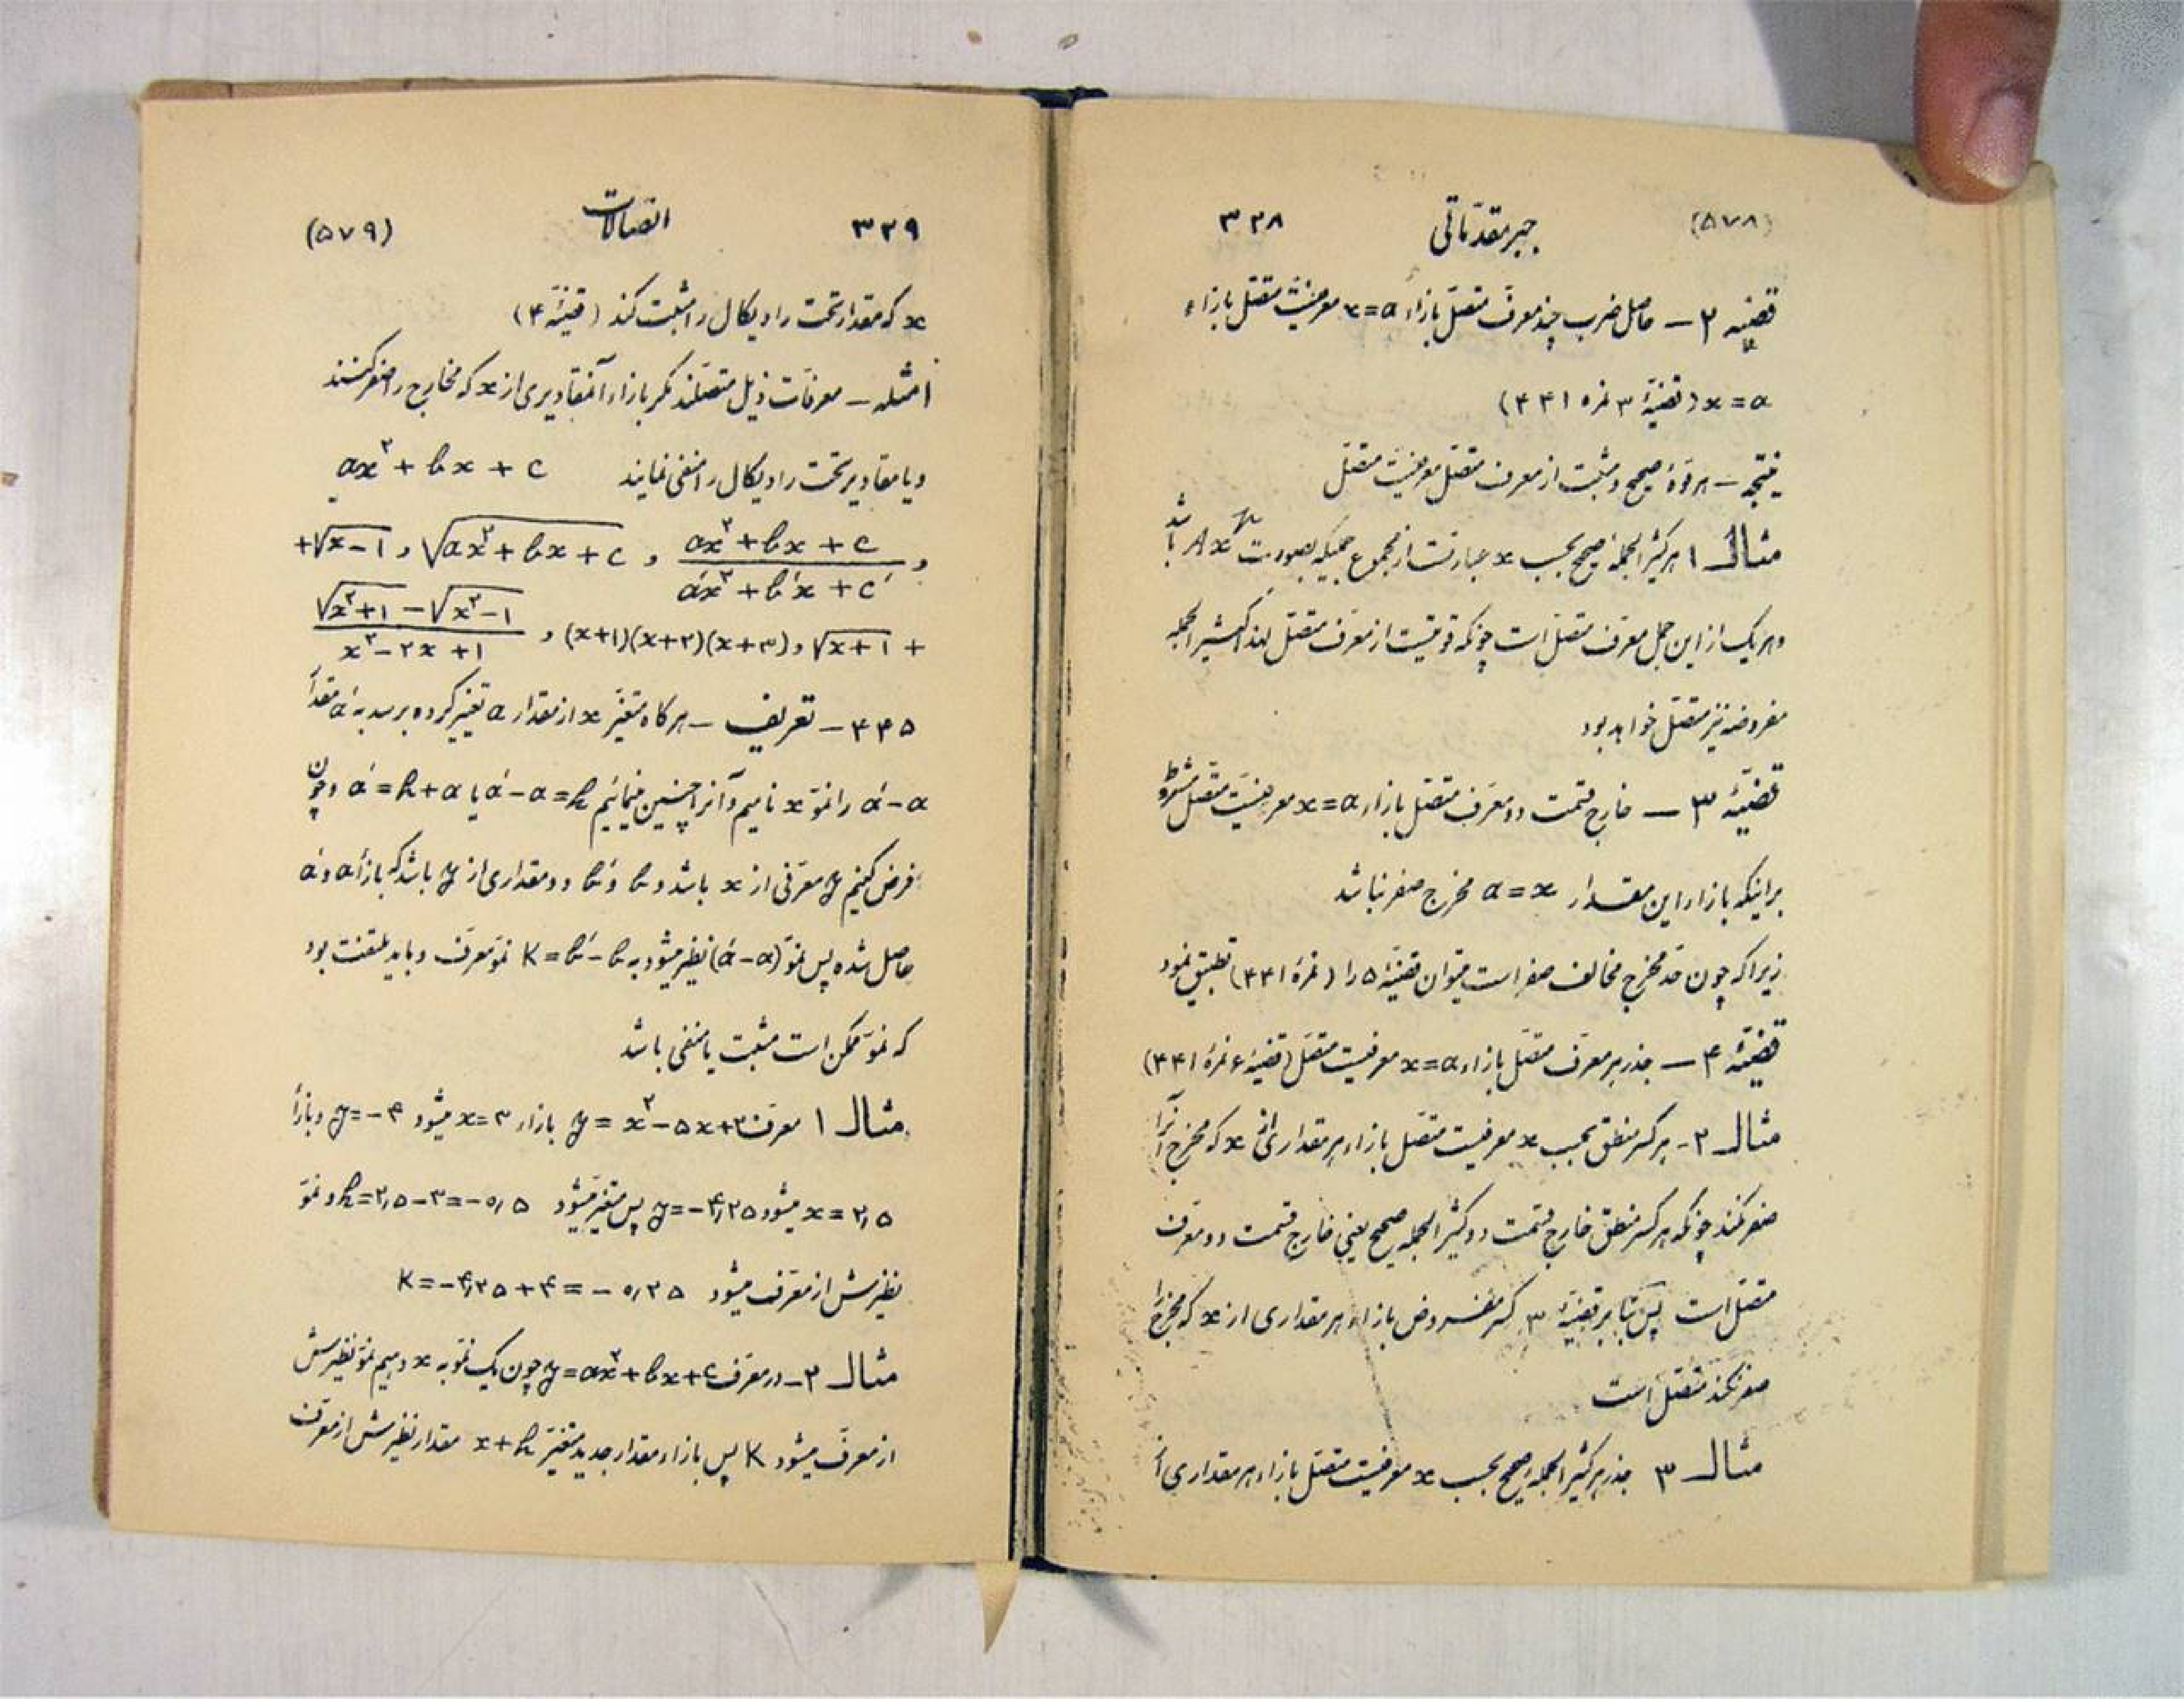 (۵۷۸) جبر مقدماتی ۳۲۸
قضیه ۲ – حاصل ضرب چند معرف متصل بازاء x=a معرفیست متصل بازاء
x=a (قضیهٔ ۳ نمره ۴۴۱)
نتیجه – هر قوهٔ صحیح و مثبت از معرف متصل معرفیست متصل
مثال ۱ هر کثیرالجملهٔ صحیح بحسب x عبارتست از مجموع جملیکه بصورت Axⁿ باشد
و هر یک از این جمل معرف متصل است چونکه قوئیست از معرف متصل لهذا کثیرالجمله
مفروضه نیز متصل خواهد بود
قضیهٔ ۳ – خارج قسمت دو معرف متصل بازاء x=a معرفیست متصل مشروط
براینکه بازاء این مقدار a=x مخرج صفر نباشد
زیرا که چون حد مخرج مخالف صفر است میتوان قضیهٔ ۵ را (نمرهٔ ۴۴۱) تطبیق نمود
قضیهٔ ۴ – جذر هر معرف متصل بازاء x=a معرفیست متصل (قضیهٔ ۶ نمرهٔ ۴۴۱)
مثال ۲- هر کسر منطق بحسب x معرفیست متصل بازاء هر مقداری از x که مخرج آنرا
صفر نکند چونکه هر کسر منطق خارج قسمت دو کثیرالجمله صحیح یعنی خارج قسمت دو معرف
متصل است پس بنابر قضیهٔ ۳ کسر مفروض بازاء هر مقداری از x که مخرج را
صفر نکند متصل است
مثال ۳ جذر هر کثیرالجملهٔ صحیح بحسب x معرفیست متصل بازاء هر مقداری از
۳۲۹ اتصالات (۵۷۹)
x که مقدار تحت رادیکال را مثبت کند (قضیهٔ ۴)
امثله – معرفات ذیل متصلند مگر بازاء آنمقادیری از x که مخارج را صفر کنند
و یا مقادیر تحت رادیکال را منفی نمایند ax²+bx+c
و (ax²+bx+c)/(a′x²+b′x+c′) و √(ax²+bx+c) و √(x-1)+
+√(x+1) و (x+1)(x+2)(x+3) و (√(x²+1)-√(x²-1))/(x²-2x+1)
۴۴۵ – تعریف – هر گاه متغیر x از مقدار a تغییر کرده برسد به a′ مقدار
a′-a را نمو x نامیم و آنرا چنین مینمائیم a′-a=h یا a′=h+a و چون
فرض کنیم y معرفی از x باشد و b و b′ دو مقداری از y باشد که بازاء a و a′
حاصل شده پس نمو (a′-a) نظیر میشود به K=b′-b نمو معرف و باید ملتفت بود
که نمو ممکن است مثبت یا منفی باشد
مثال ۱ معرف y=x²-۵x+۲ بازاء x=۳ میشود y=-۴ و بازاء
x=۲٫۵ میشود y=-۴٫۲۵ پس متغیر میشود h=۲٫۵-۳=-۰٫۵ و نمو
نظیرش از معرف میشود K=-۴٫۲۵+۴=-۰٫۲۵
مثال ۲- در معرف y=ax²+bx+c چون یک نمو به x دهیم نمو نظیرش
از معرف میشود K پس بازاء مقدار جدید متغیر x+h مقدار نظیرش از معرف